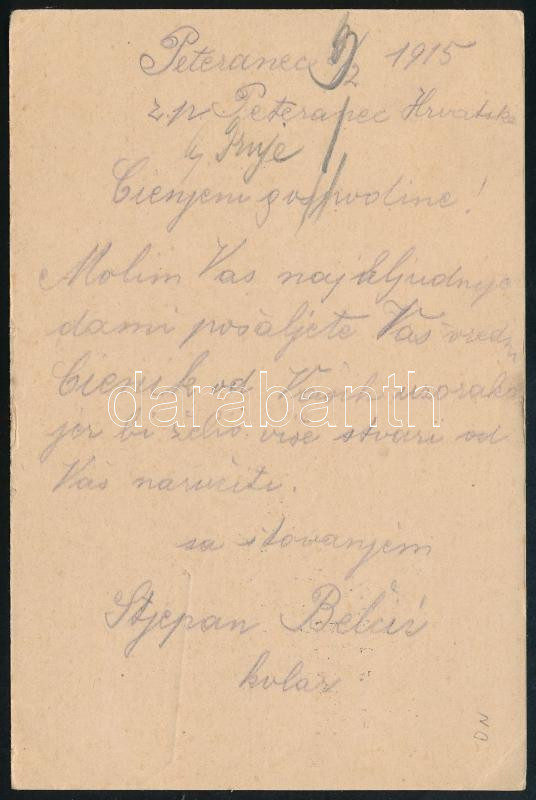 Peteranec 9/2 1915
z p Peteranec Hrvatska
Cienjeni gospodine!
Molim Vas najuljudnije
dami pošaljete Vaš vredni
Cienik od Vaših uzoraka
jer bi želio više stvari od
Vas naručiti.
sa štovanjem
Stjepan
kolar
DN
darabanth